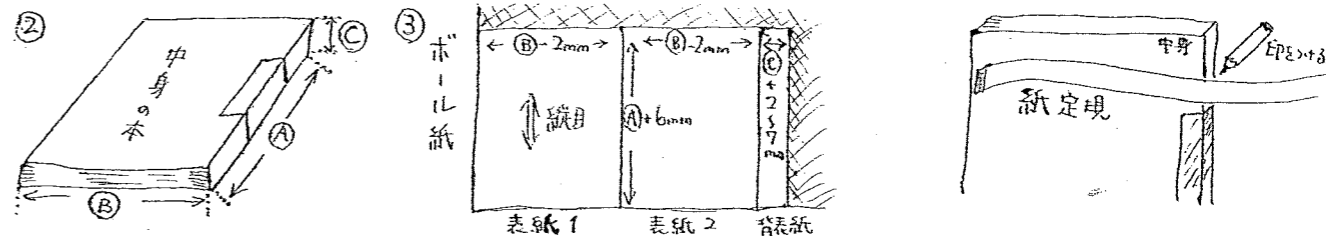 ②
中身の本
Ⓐ
Ⓑ
Ⓒ
③
ボール紙
Ⓑ-2mm
Ⓑ-2mm
Ⓒ+2~7mm
縦目
Ⓐ+6mm
表紙1
表紙2
背表紙
中身
印をつける
紙定規